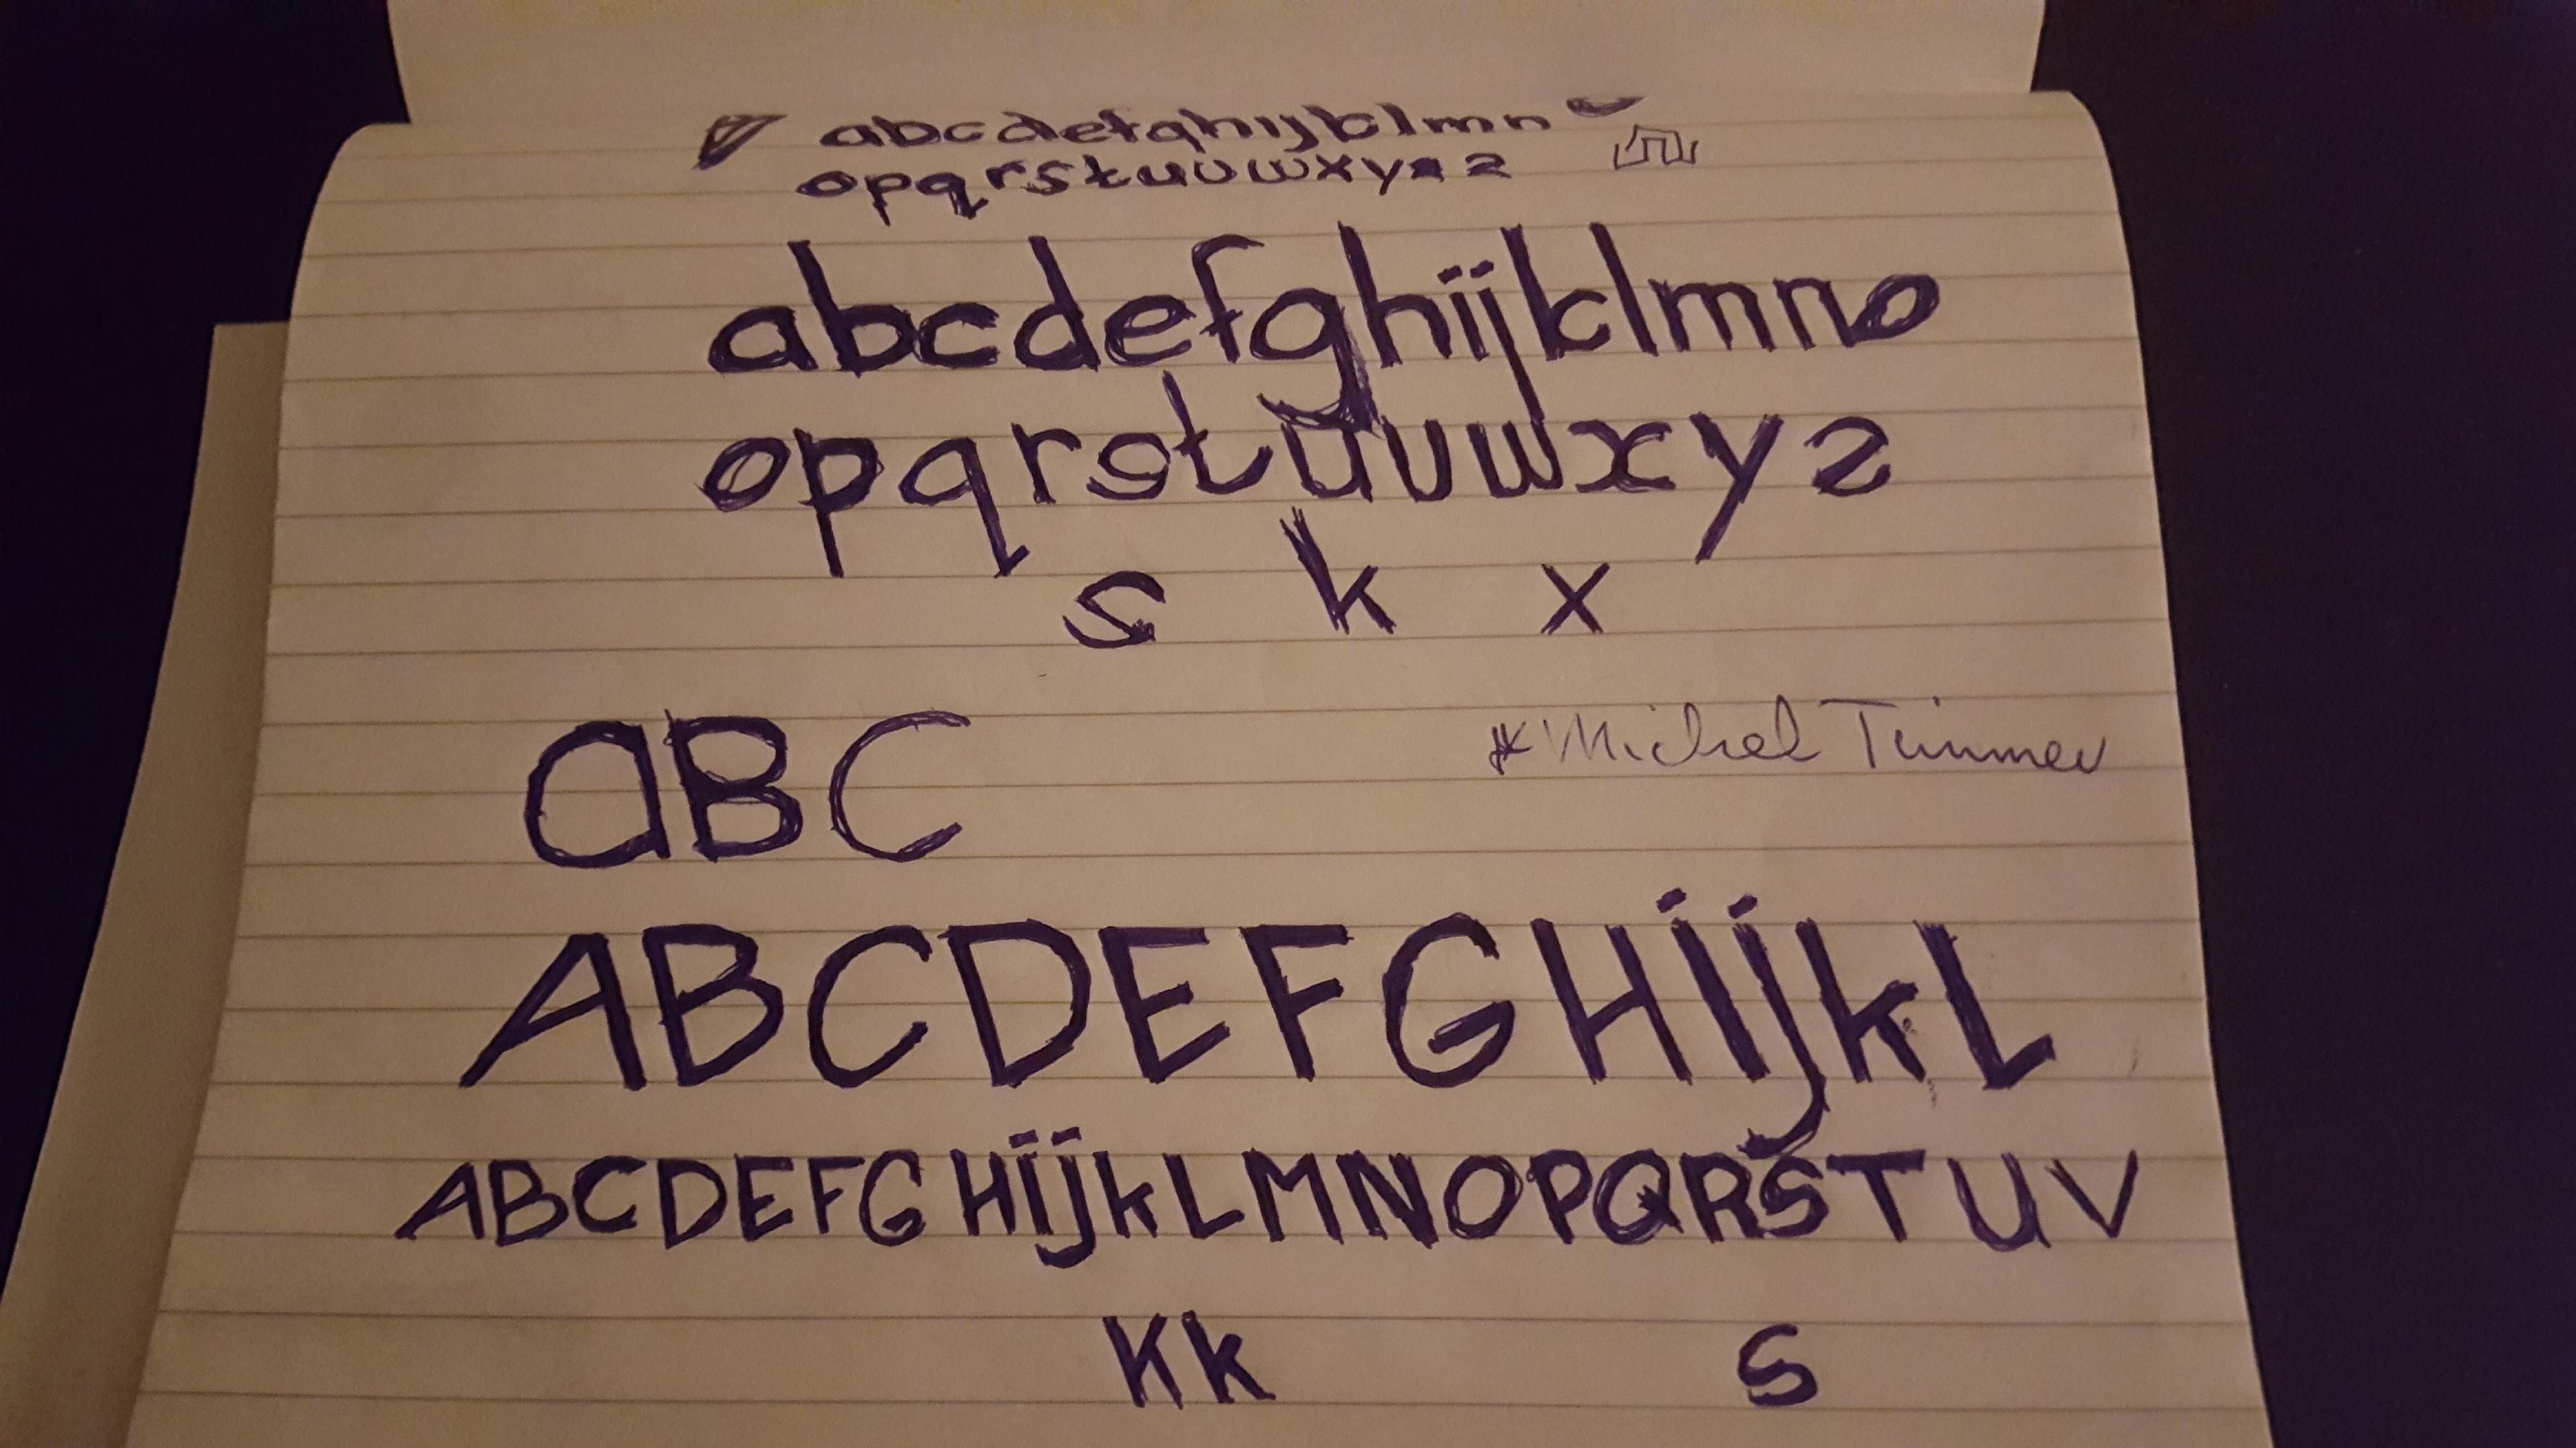 abcdefghijklmn
opqrstuvwxyzz
abcdefghijklmno
opqrstuvwxyz
s k x
aBC
Michel Timmer
ABCDEFGHijkL
ABCDEFGHijkLMNOPQRSTUV
Kk S